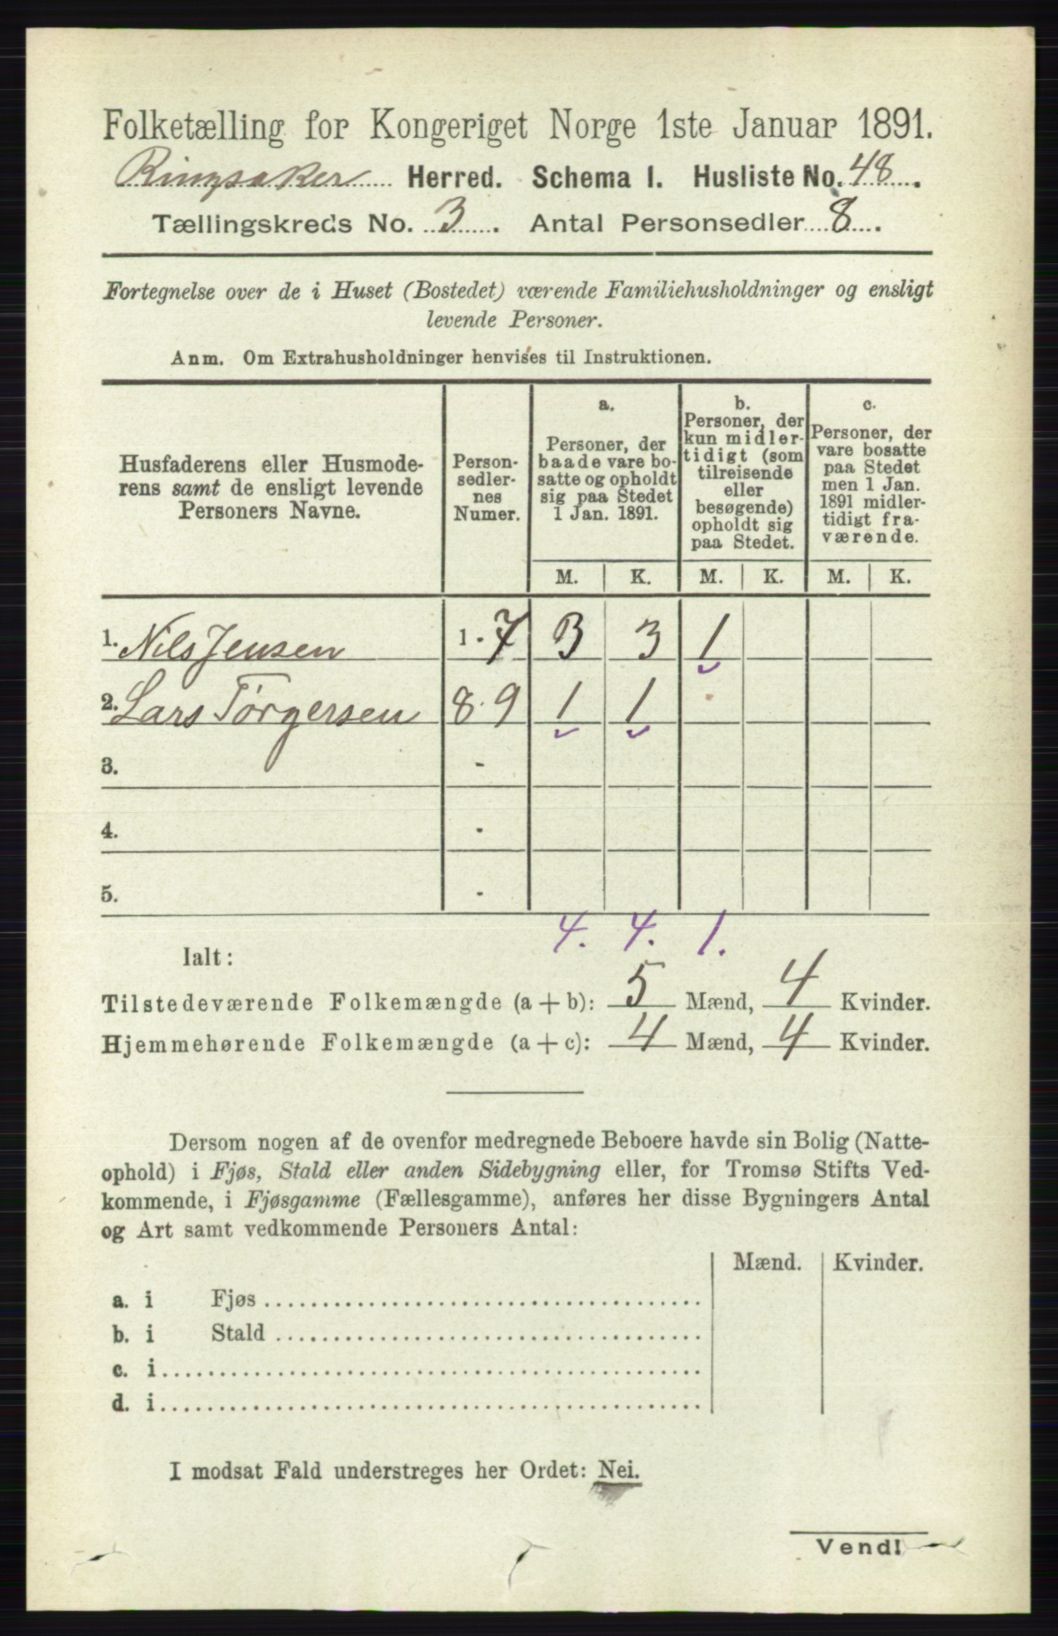 Folketælling for Kongeriget Norge 1ste Januar 1891.
Ringsaker Herred. Schema I. Husliste No. 48.
Tællingskreds No. 3. Antal Personsedler 8.
Fortegnelse over de i Huset (Bostedet) værende Familiehusholdninger og ensligt
levende Personer.
Anm. Om Extrahusholdninger henvises til Instruktionen.
Husfaderens eller Husmode-
rens samt de ensligt levende
Personers Navne.
Person-
sedler-
nes
Numer.
a.
Personer, der
baade vare bo-
satte og opholdt
sig paa Stedet
1 Jan. 1891.
b.
Personer, der
kun midler-
tidigt (som
tilreisende
eller
besøgende)
opholdt sig
paa Stedet.
c.
Personer, der
vare bosatte
paa Stedet
men 1 Jan.
1891 midler-
tidigt fra-
værende.
M. K. M. K. M. K.
1. Nils Jensen 1 - 7 3 3 1
2. Lars Törgersen 8 - 9 1 1
3. -
4. -
5. -
4. 4. 1.
Ialt:
Tilstedeværende Folkemængde (a + b): 5 Mænd, 4 Kvinder.
Hjemmehørende Folkemængde (a + c): 4 Mænd, 4 Kvinder.
Dersom nogen af de ovenfor medregnede Beboere havde sin Bolig (Natte-
ophold) i Fjøs, Stald eller anden Sidebygning eller, for Tromsø Stifts Ved-
kommende, i Fjøsgamme (Fællesgamme), anføres her disse Bygningers Antal
og Art samt vedkommende Personers Antal:
Mænd. Kvinder.
a. i Fjøs
b. i Stald
c. i
d. i
I modsat Fald understreges her Ordet: Nei.
Vend!